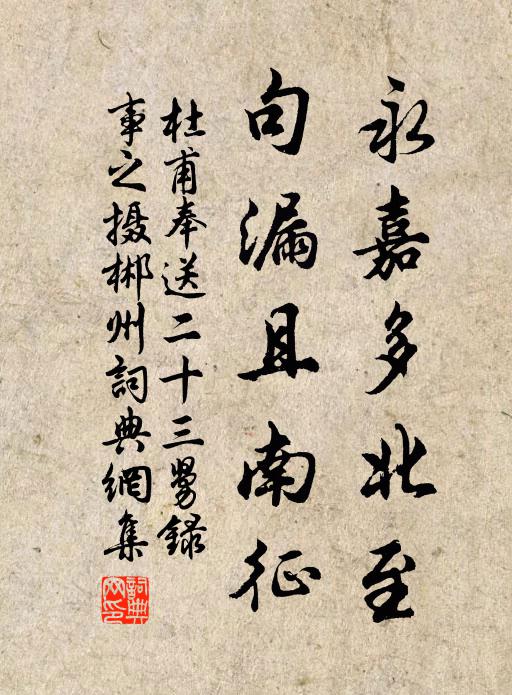 永嘉多北至
句漏且南征
杜甫奉送二十三舅録
事之摄郴州詞典網集
詞典
网印